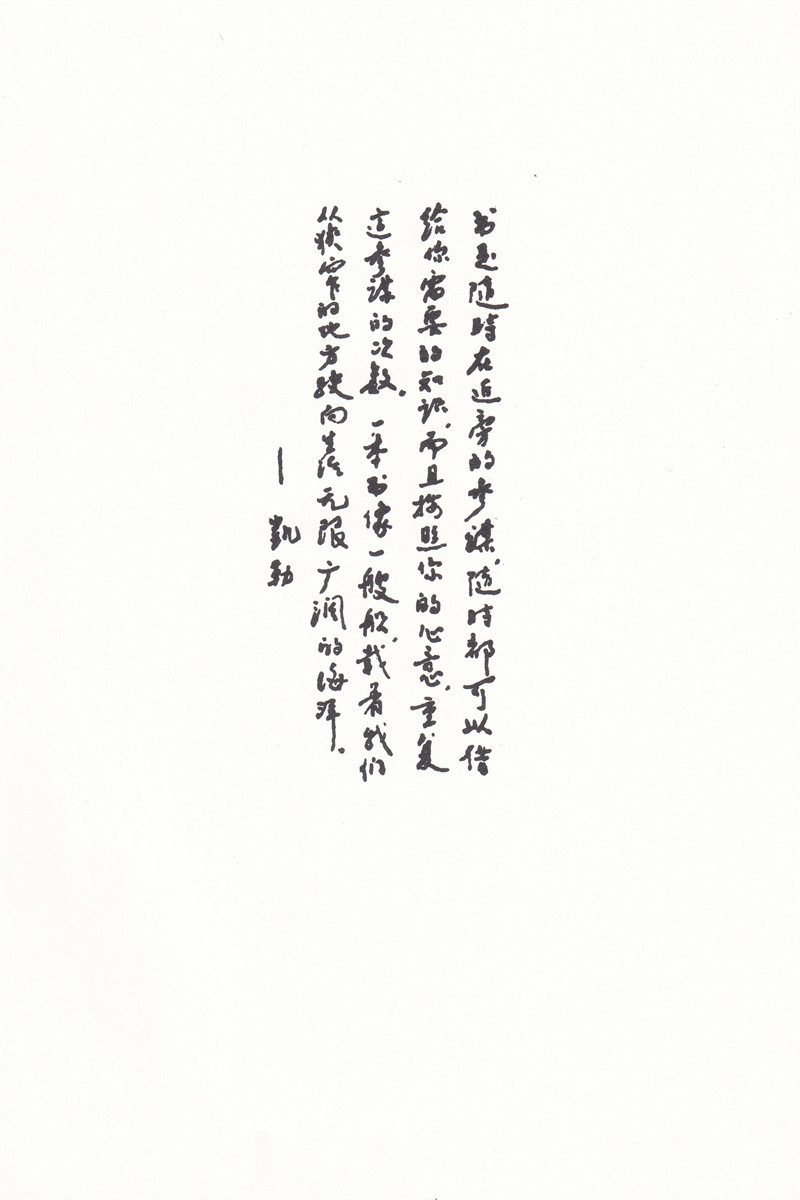 书是随時在近旁的参謀，随时都可以借
给你需要的知识，而且按照你的心意，重复
這参謀的次数。一本书像一艘船，载着我们
从狭窄的地方駛向生活无限广濶的海洋。
— 凱勒